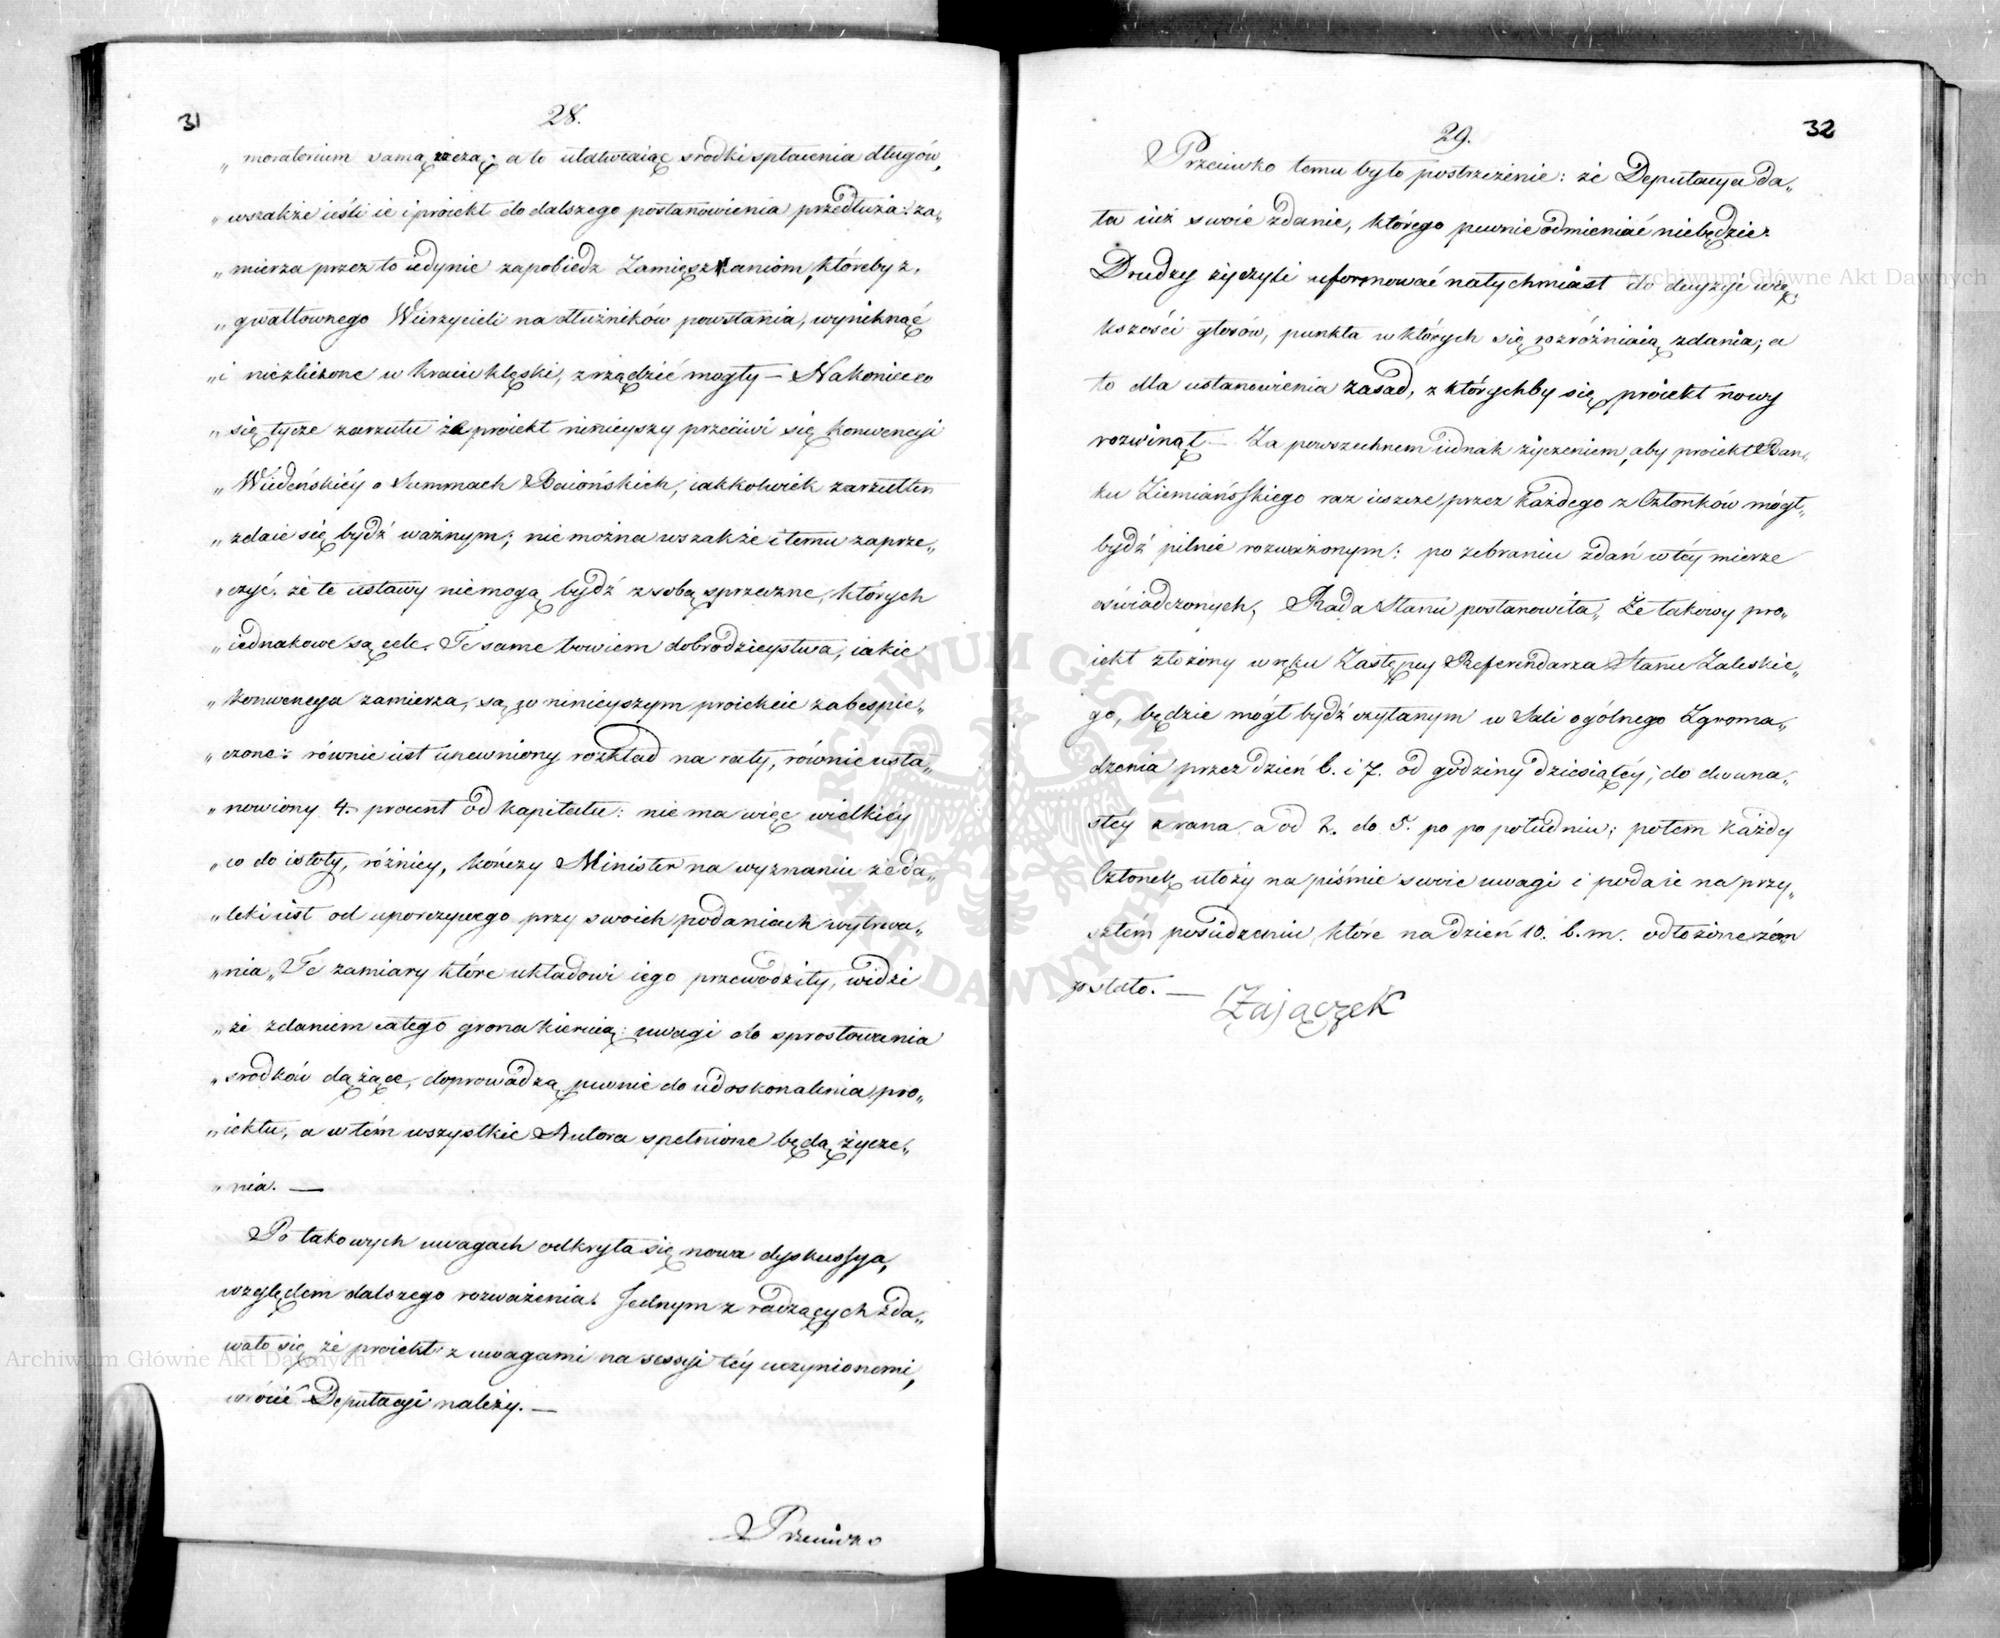 31
28.
„ moratorium samą rzeczą; a to ułatwiaiąc srodki spłacenia długów,
„ wszakże ieśli ie i proiekt do dalszego postanowienia przedłuża: za„
„ mierza przez to iedynie zapobiedz Zamięszkaniom, któreby z
„ gwałtownego Wierzycieli na dłużników powstania, wyniknąć
„ i niezliczone w kraiu klęski, zrządzić mogły — Nakoniec co
„ się tycze zarzutu że proiekt ninieyszy przeciwi się konwencyi
„ Wiédeńskiéy o Summach Baiońskich, iakkolwiek zarzut ten
„ zdaie się bydź ważnym; nie można wszakże i temu zaprze„
„ czyć, że te ustawy nie mogą bydź z sobą sprzeczne, których
„ iednakowe są cele. Te same bowiem dobrodzieystwa, iakie
„ konwencya zamierza, są w ninieyszym proiekcie zabespie„
„ czone: równie iest upewniony rozkład na raty, równie usta„
„ nowiony 4. procent od kapitału: nie ma więc wielkiéy
„ co do istoty, różnicy, kończy Minister na wyznaniu że da„
„ leki iest od uporczywego przy swoich podaniach wytrwa„
„ nia „ Te zamiary które układowi iego przewodziły, widzi
„ że zdaniem całego grona kieruią: uwagi do sprostowania
„ srodków dążące, doprowadzą pewnie do udoskonalenia pro„
„ iektu, a w tém wszystkie Autora spełnione będą życze„
„ nia. —
Po takowych uwagach odkryła się nowa dyskussya,
względem dalszego rozważenia. Jednym z radzących zda„
wało się że proiekt z uwagami na sessyi téy uczynionemi,
wrócić Deputacyi należy. —
Przeciwko
32
29.
Przeciwko temu było postrzeżenie: że Deputacya da„
ła iuż swoie zdanie, którego pewnie odmieniać niebędzie.
Drudzy życzyli uformować natychmiast do decyzyi wię„
kszości głosów, punkta w których się rozróżniaią zdania; a
to dla ustanowienia zasad, z którychby się proiekt nowy
rozwinął — Za powszechnem iednak życzeniem, aby proiekt Ban„
ku Ziemiańskiego raz ieszcze przez każdego z Członków mógł
bydź pilnie rozważonym: po zebraniu zdań w téy mierze
oświadczonych, Rada Stanu postanowiła, Że takowy pro„
iekt złożony w ręku Zastępcy Referendarza Stanu Zaleskie„
go, będzie mógł bydź czytanym w Sali ogólnego Zgroma„
dzenia przez dzień 6. i 7. od godziny dziesiątéy, do dwuna„
stéy z rana, a od 2. do 5. po po południu; potem każdy
Członek ułoży na piśmie swoie uwagi i podaie na przy„
szłém posiedzeniu, które na dzień 10. b. m. odłożone zo„
stało. —
Zajączek
Archiwum Główne Akt Dawnych
Archiwum Główne Akt Dawnych
ARCHIWUM GŁÓWNE AKT DAWNYCH